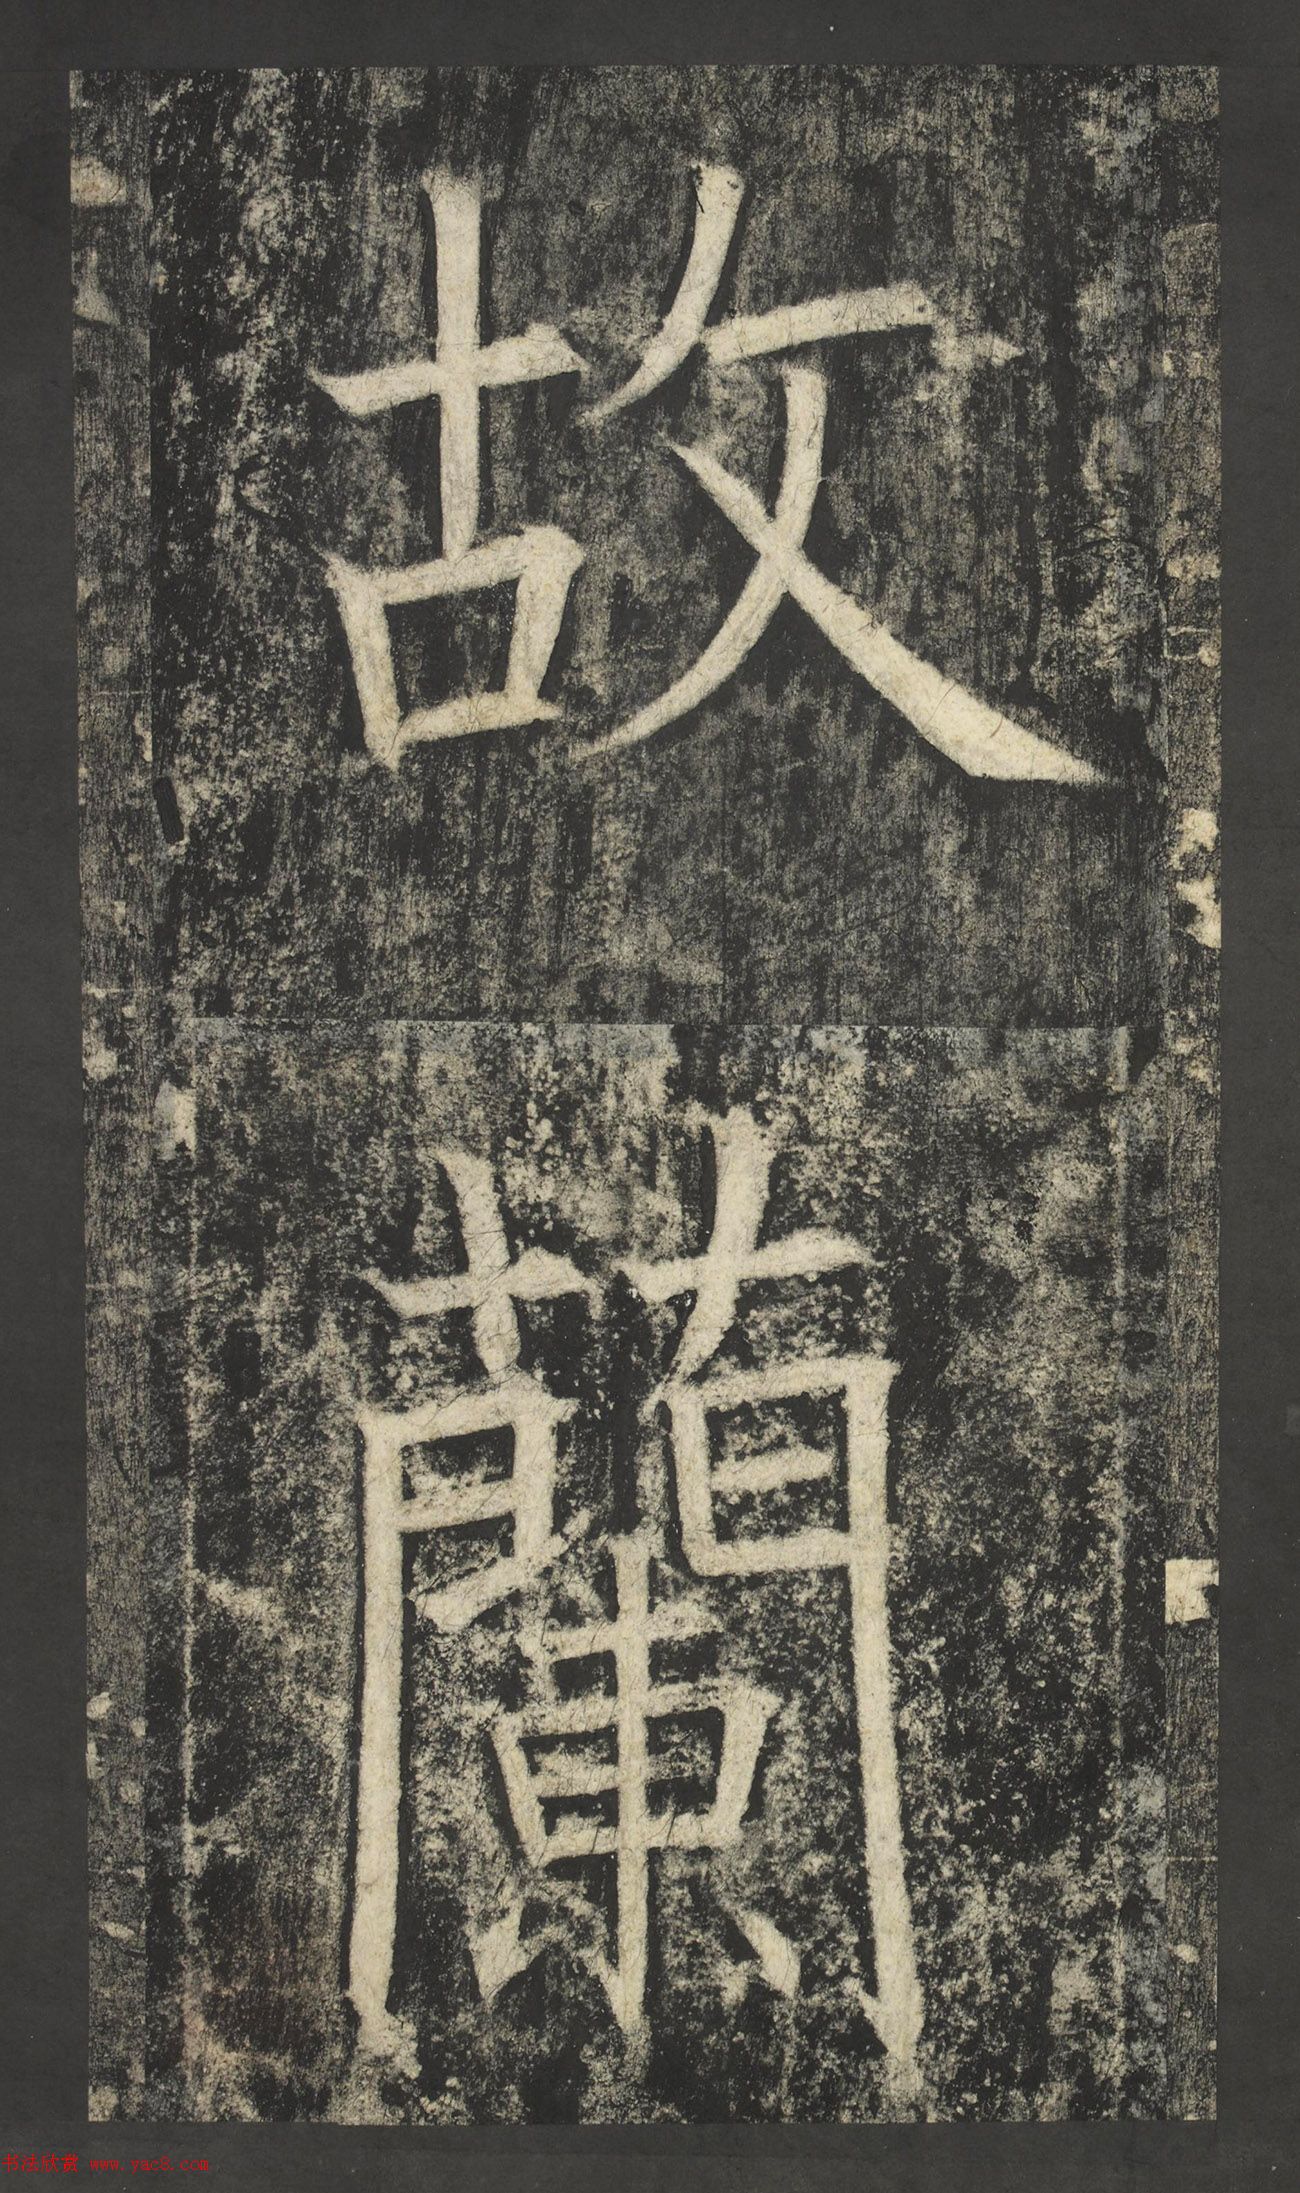 故
蘭
书法欣赏 www.yac8.com